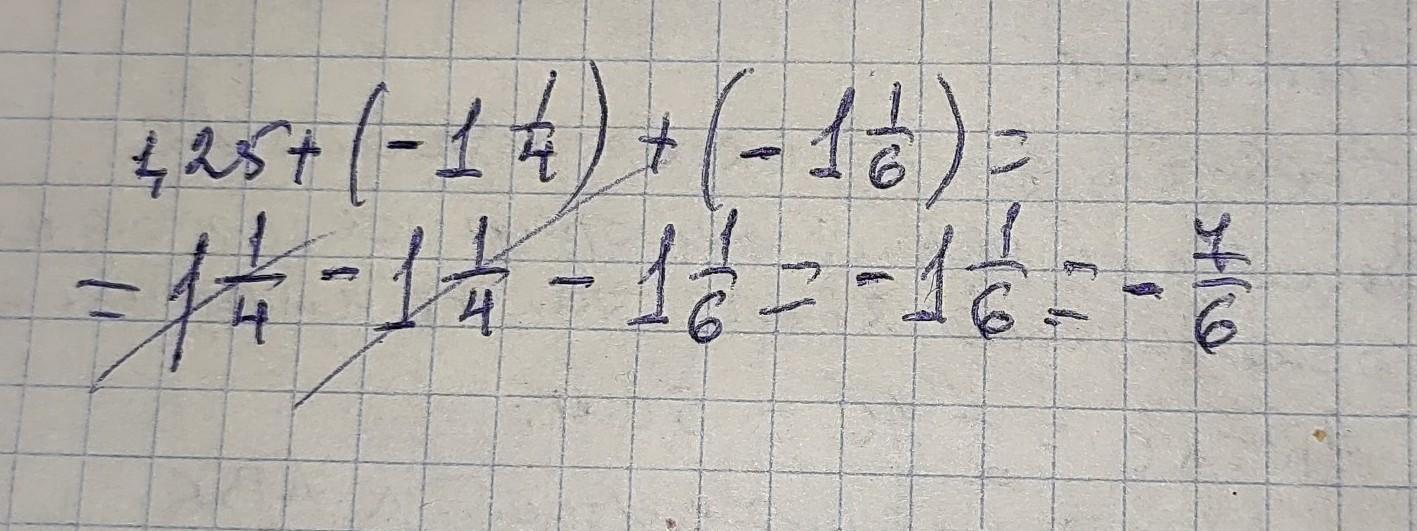 1,25 + (-1 1/4) + (-1 1/6) =
= 1 1/4 - 1 1/4 - 1 1/6 = -1 1/6 = - 7/6